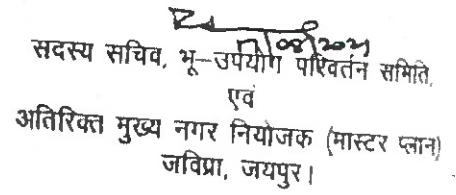 सदस्य सचिव, भू–उपयोग परिवर्तन समिति,
एवं
अतिरिक्त मुख्य नगर नियोजक (मास्टर प्लान)
जविप्रा, जयपुर।